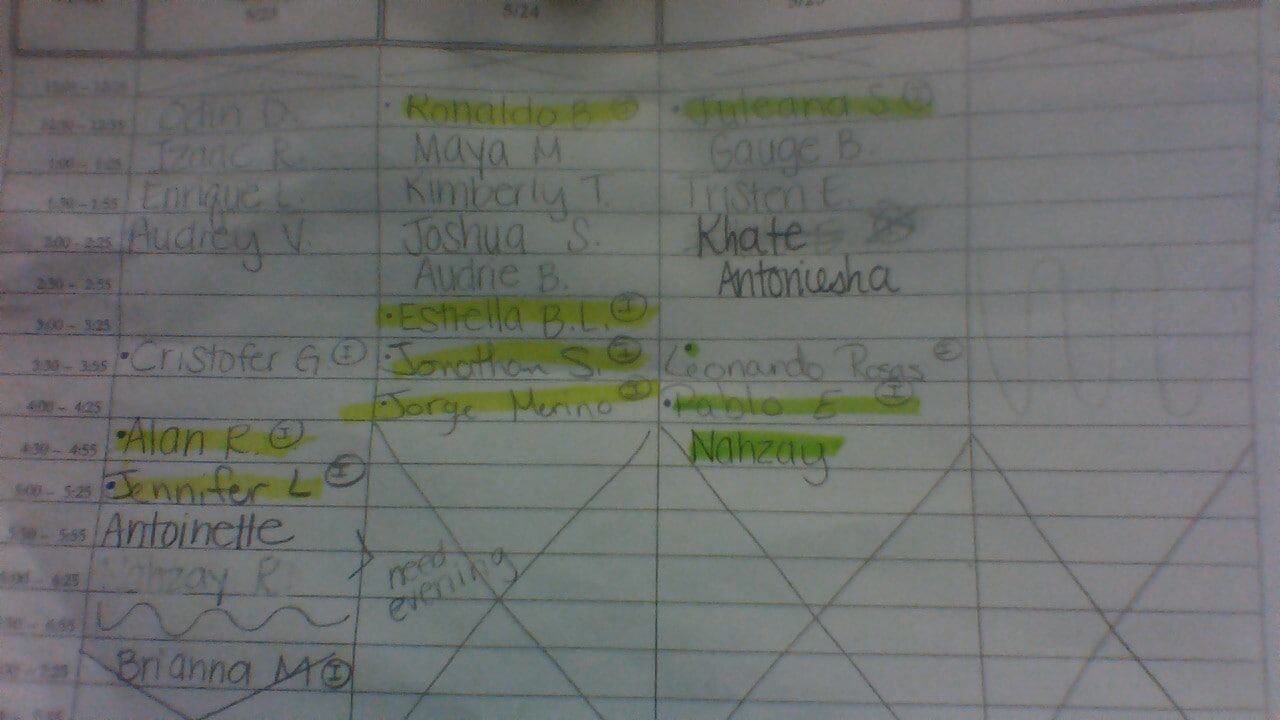 5/23 5/24 5/25
12:00 - 12:25
12:30 - 12:55 Odin D. · Ronaldo B I · Juleana S I
1:00 - 1:25 Izaac R. Maya M Gauge B.
1:30 - 1:55 Enrique L. Kimberly T. Tristen E.
2:00 - 2:25 Audrey V. Joshua S. Khate
2:30 - 2:55 Audrie B. Antoniesha
3:00 - 3:25 · Estrella B.L. I
3:30 - 3:55 · Cristofer G I · Jonathan S. I Leonardo Rosas I
4:00 - 4:25 · Jorge Merino I · Pablo E I
4:30 - 4:55 · Alan R. I Nahzay
5:00 - 5:25 · Jennifer L I
5:30 - 5:55 Antoinette
6:00 - 6:25 Nahzay R need
evening
6:30 - 6:55
7:00 - 7:25 Brianna M I